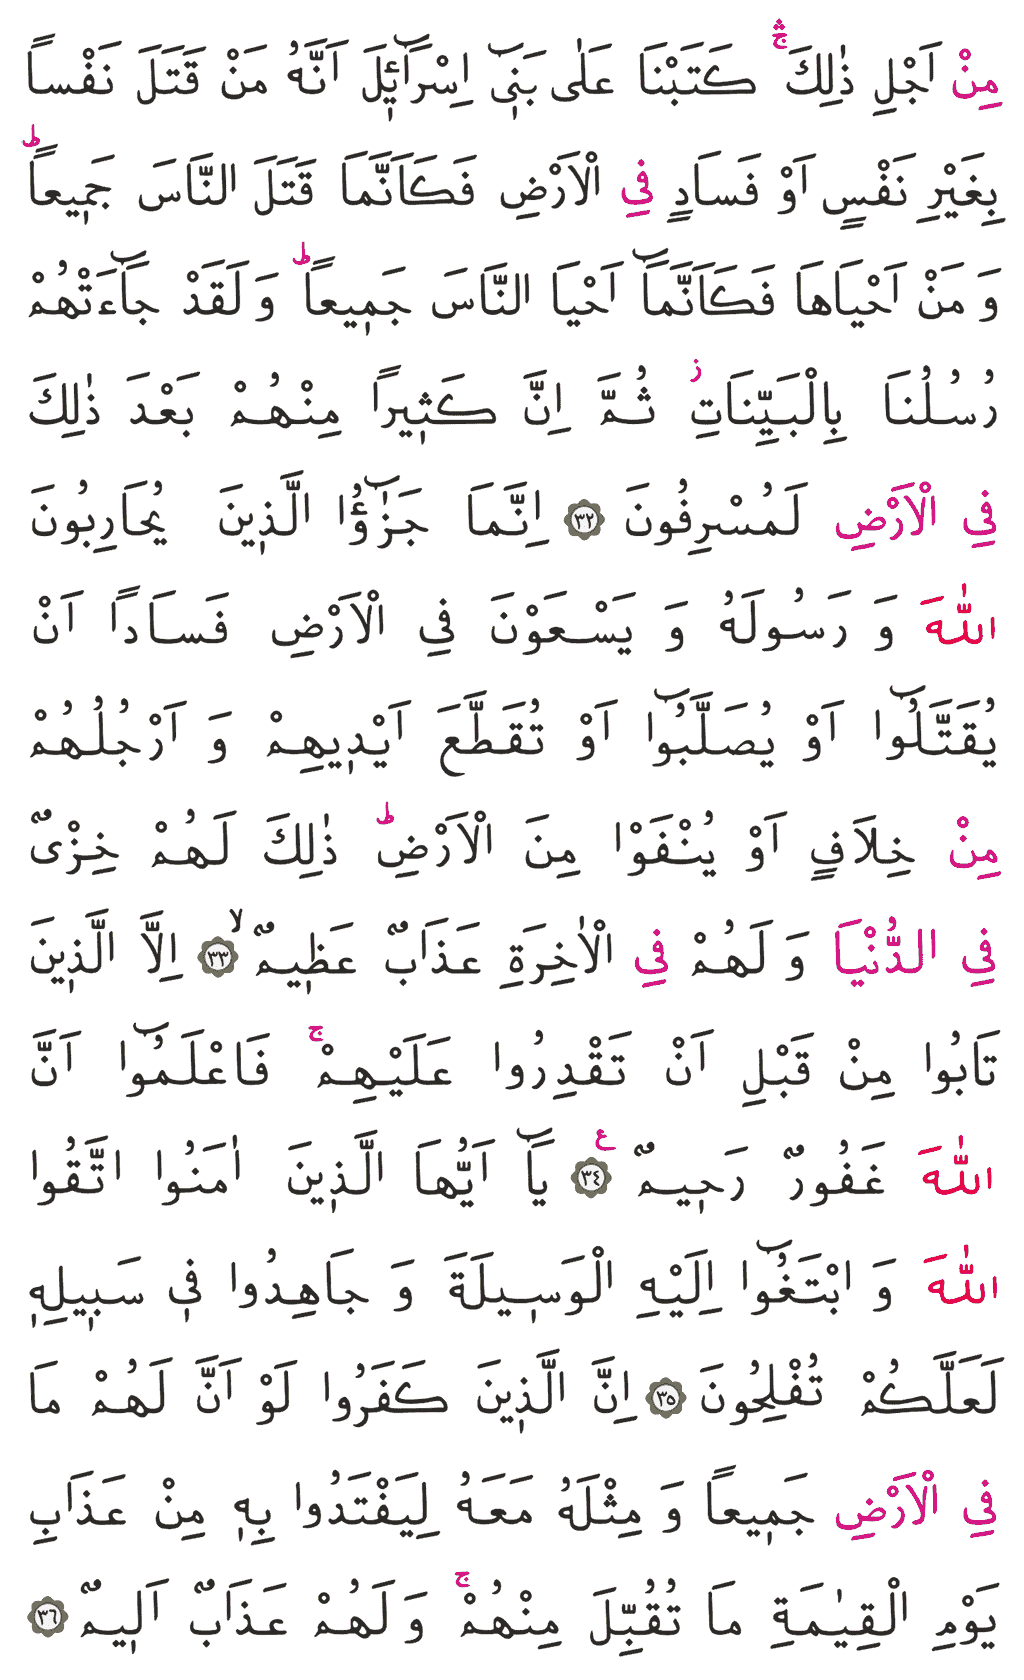 مِنْ اَجْلِ ذٰلِكَۛۚ كَتَبْنَا عَلٰى بَن۪ٓي اِسْرَٓائ۪لَ اَنَّهُ مَنْ قَتَلَ نَفْساً
بِغَيْرِ نَفْسٍ اَوْ فَسَادٍ فِي الْاَرْضِ فَكَاَنَّمَا قَتَلَ النَّاسَ جَم۪يعاًۜ
وَ مَنْ اَحْيَاهَا فَكَاَنَّمَٓا اَحْيَا النَّاسَ جَم۪يعاًۜ وَ لَقَدْ جَٓاءَتْهُمْ
رُسُلُنَا بِالْبَيِّنَاتِۘ ثُمَّ اِنَّ كَث۪يراً مِنْهُمْ بَعْدَ ذٰلِكَ
فِي الْاَرْضِ لَمُسْرِفُونَ ﴿٣٢﴾ اِنَّمَا جَزٰٓؤُا الَّذ۪ينَ يُحَارِبُونَ
اللّٰهَ وَ رَسُولَهُ وَ يَسْعَوْنَ فِي الْاَرْضِ فَسَاداً اَنْ
يُقَتَّلُٓوا اَوْ يُصَلَّبُٓوا اَوْ تُقَطَّعَ اَيْد۪يهِمْ وَ اَرْجُلُهُمْ
مِنْ خِلَافٍ اَوْ يُنْفَوْا مِنَ الْاَرْضِۜ ذٰلِكَ لَهُمْ خِزْىٌ
فِي الدُّنْيَا وَ لَهُمْ فِي الْاٰخِرَةِ عَذَابٌ عَظ۪يمٌۙ ﴿٣٣﴾ اِلَّا الَّذ۪ينَ
تَابُوا مِنْ قَبْلِ اَنْ تَقْدِرُوا عَلَيْهِمْۚ فَاعْلَمُٓوا اَنَّ
اللّٰهَ غَفُورٌ رَح۪يمٌ ﴿٣٤﴾ ع يَٓا اَيُّهَا الَّذ۪ينَ اٰمَنُوا اتَّقُوا
اللّٰهَ وَ ابْتَغُٓوا اِلَيْهِ الْوَس۪يلَةَ وَ جَاهِدُوا ف۪ي سَب۪يلِه۪
لَعَلَّكُمْ تُفْلِحُونَ ﴿٣٥﴾ اِنَّ الَّذ۪ينَ كَفَرُوا لَوْ اَنَّ لَهُمْ مَا
فِي الْاَرْضِ جَم۪يعاً وَ مِثْلَهُ مَعَهُ لِيَفْتَدُوا بِه۪ مِنْ عَذَابِ
يَوْمِ الْقِيٰمَةِ مَا تُقُبِّلَ مِنْهُمْۚ وَ لَهُمْ عَذَابٌ اَل۪يمٌ ﴿٣٦﴾